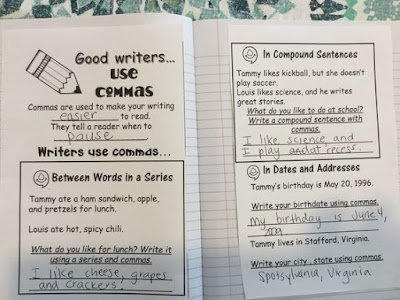 Good writers...
USE
COMMAS
Commas are used to make your writing
easier to read.
They tell a reader when to
pause
Writers use commas...
Between Words in a Series
Tammy ate a ham sandwich, apple,
and pretzels for lunch.
Louis ate hot, spicy chili.
What do you like for lunch? Write it
using a series and commas.
I like cheese, grapes
and crackers.
In Compound Sentences
Tammy likes kickball, but she doesn't
play soccer.
Louis likes science, and he writes
great stories.
What do you like to do at school?
Write a compound sentence with
commas.
I like science, and
I play at recess.
In Dates and Addresses
Tammy's birthday is May 20, 1996.
Write your birthdate using commas.
my birthday is June 4,
Tammy lives in Stafford, Virginia.
Write your city, state using commas.
Spotsylvania, Virginia